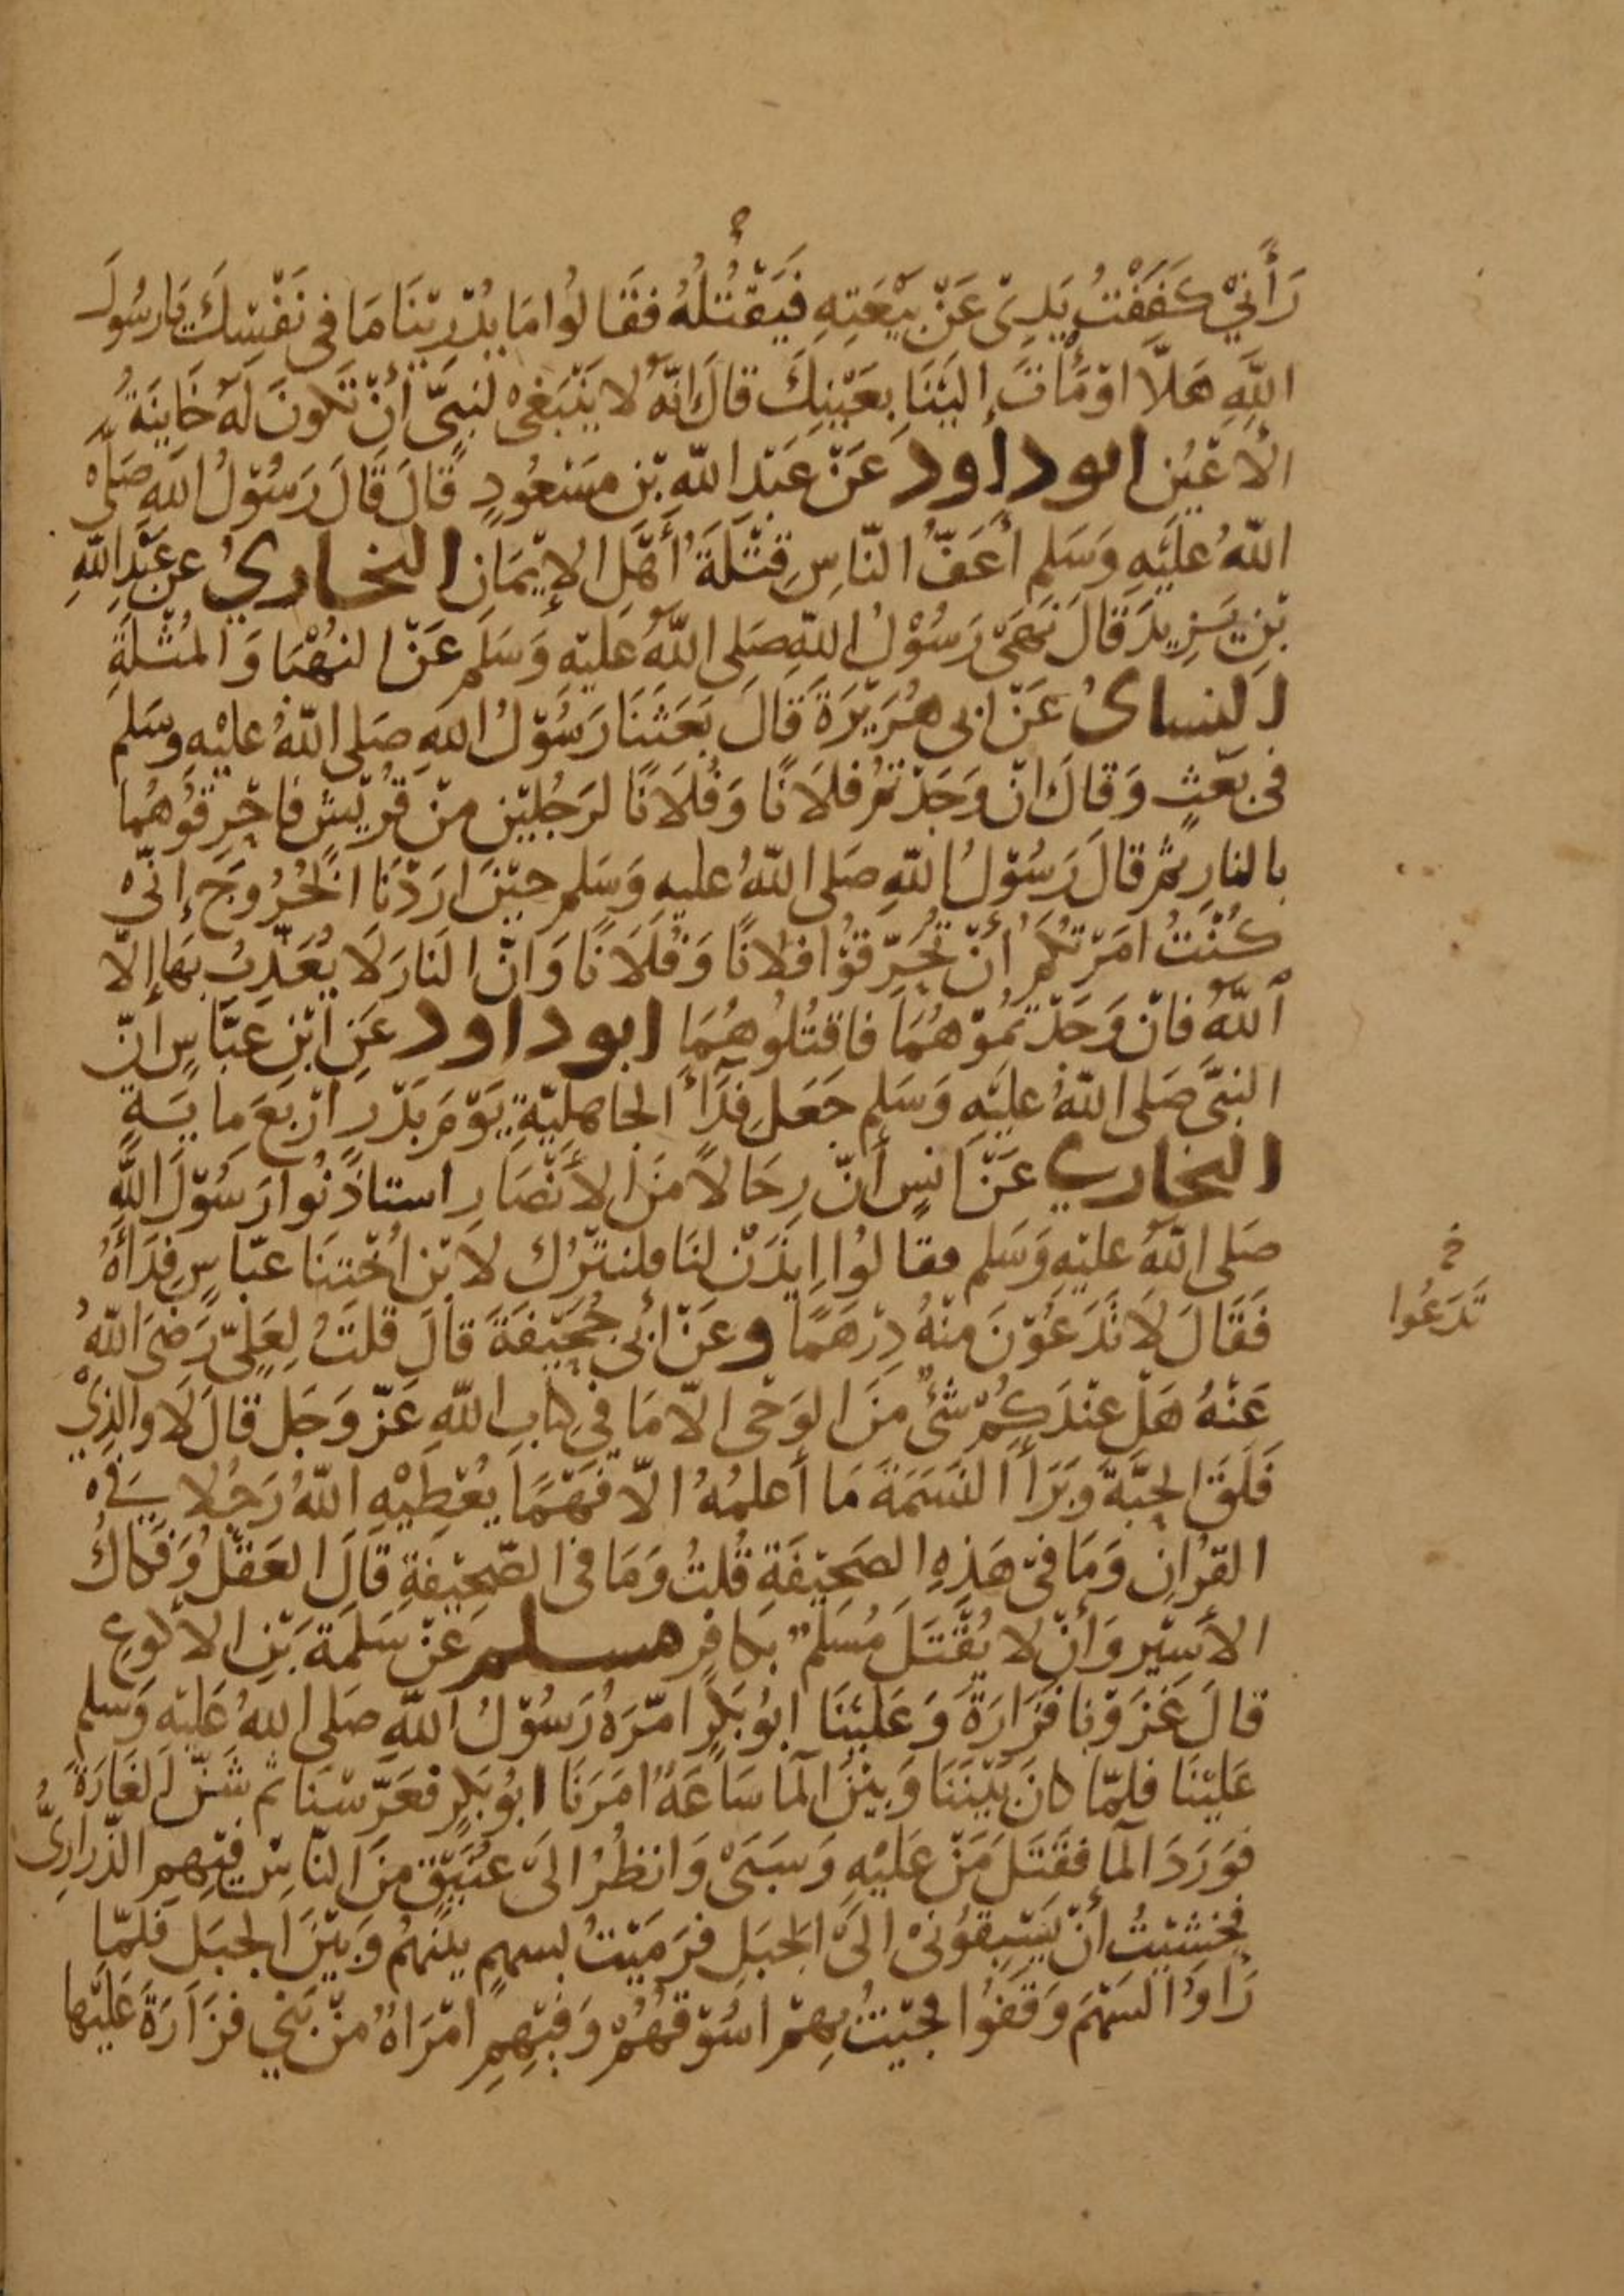 رَأَنِيْ كَفَفْتُ يَدِىْ عَنْ بَيْعَتِهِ فَيَقْتُلُهُ فَقَالُوا مَا يُدْرِيْنَا مَا فِى نَفْسِكَ يَا رسُولَ
اللهِ هَلَّا اوْمَأتَ إِلَيْنَا بِعَيْنِكَ قالَ انّهُ لا يَنْبَغِىْ لنبىٍّ أنْ تَكونَ لَهُ خَاينَةُ
الْأَعْيُن ابو داود عَنْ عَبْدِ اللهِ بْنِ مسَعُودٍ قالَ قَالَ رَسُوْلُ اللهِ صَلى
اللهُ عليَهِ وَسَلم أَعَفُّ النّاسِ قِتْلَةً أَهْلِ الإيْمَانِ البخاريُ عن عَبْدِ اللهِ
بْنِ يَزِيدَ قالَ نَهَىْ رَسُوْلُ اللهِ صَلى اللهُ عَليْهِ وَسَلم عَنْ النهْبَا وَالمُثْلَةِ
النساىُ عَنْ ابى هُرَيْرَةَ قَالَ بَعَثَنَا رَسُوْلُ اللهِ صَلى اللهُ عليْهِ وسَلم
فى بَعْثٍ وَقَالَ انْ وَجَدْتُمْ فلَانًا وَفُلَانًا لرَجُليْنِ مِنْ قُرَيْشٍ فاحْرِقوُهُما
بالنارِ ثم قالَ رَسُوْلُ اللهِ صَلى اللهُ عليهِ وَسَلم حيْنَ ارَدْنَا الْخُرُوجَ إنّى
كُنْتُ امَرْتكُمْ أنْ تُحَرِّقُوْا فلانًا وَفُلَانًا وَانّ النارَ لَا يُعَذِّبُ بِهَا إلّا
اللهُ فانْ وَجَدْتُمُوْهُمَا فاقتُلوُهُمَا ابو داود عَنِ ابْنِ عَبَّاسٍ انّ
النبىَّ صَلى اللهُ عليَهِ وَسَلم جَعَل فِدَأَ الجاهِليّةِ يَوْمَ بَدْرِ ارْبعَ مايَةٍ
البخاري عَنْ انسٍ أنّ رجَالًا مَنَ الأنْصَارِ استاذنُوا رَسُوْلَ اللهِ
صَلى اللهُ عليْهِ وَسَلم فقالوُا ايذَنْ لنَا فلنتْرُك لابْنِ اُخْتِنَا عبّاسٍ فِدَأَهُ
فَقَالَ لَا تَدَعُوْنَ مِنْهُ دِرْهَمًا وعَنْ أبى جُحَيْفَةَ قالَ قلتُ لِعَلِىّ رَضِىَ اللهُ
عَنْهُ هَلْ عِنْدَكُمْ شَىْءٌ مِنَ الوَحْى الّا مَا فى كتابِ اللهِ عَزّ وَجَل قالَ لا والذِىْ
فَلَقَ الحَبَّةَ وَبَرَأَ النَسَمَةَ مَا أعلمُهُ الّا فَهْمًا يُعْطِيْهِ اللهُ رَجُلا فِى
القرُانِ وَمَا فىْ هَذِهِ الصَحِيْفَةِ قُلتُ وَمَا فى الصّحِيْفَةِ قَالَ العَقْلُ وَفَكَاكُ
الأسِيْرِ وَأنْ لا يُقْتَلَ مُسَلمٌ بكافِرٍ مسلم عَنْ سَلمَةَ بْنِ الاكوعِ
قالَ غَزَوْنا فَزَارَةَ وَعَليْنَا ابُو بَكرٍ امّرَهُ رَسُوْلُ اللهِ صَلى اللهُ عَليْهِ وَسلم
عَليْنَا فلمّا كانَ بَيْنَنَا وَبيْنَ الْمَا سَاعَةٌ امَرَنَا ابُو بَكرٍ فعَرّسْنَا ثم شَنّ الغَارَةَ
فوَرَدَ الْمَا فقَتَلَ مَنْ عَليْهِ وَسَبَىْ وَانظُرُ الىَ عنُقٍ مِنَ النّاسِ فيْهِمِ الذّرارِىُّ
فخَشيْتُ أنْ يَسْبِقُوْنِىْ الىَ الجبَلِ فرَمَيْتُ بسهمٍ بيْنَهُمْ وَبيْنَ الجبَل فلمّا
رَأوُا السّهْمَ وَقفُوا فجيْتُ بِهِمْ اسُوْقهُمْ وَفِيْهِم امْرَاةٌ مِنْ بَنِي فزَارَةَ عَليْها
تَدَعُوا